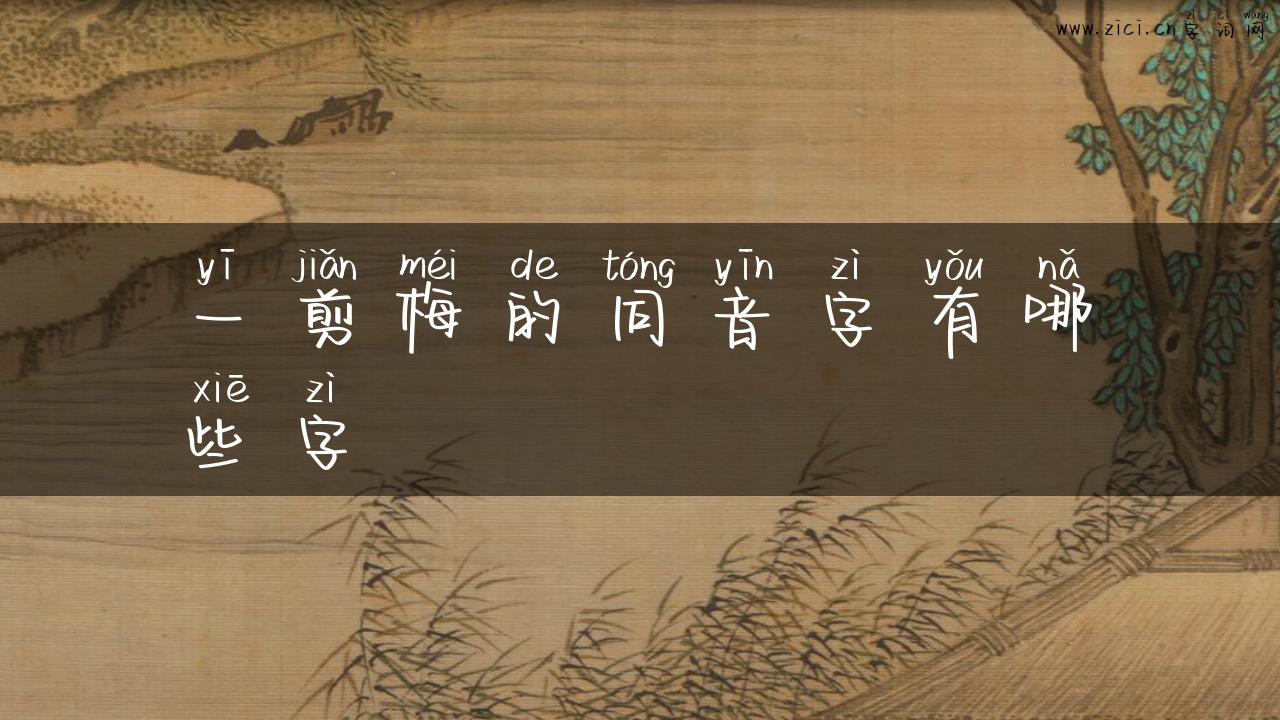 zì cí wǎng
www.zici.cn字词网
yī jiǎn méi de tóng yīn zì yǒu nǎ
一剪梅的同音字有哪
xiē zì
些字